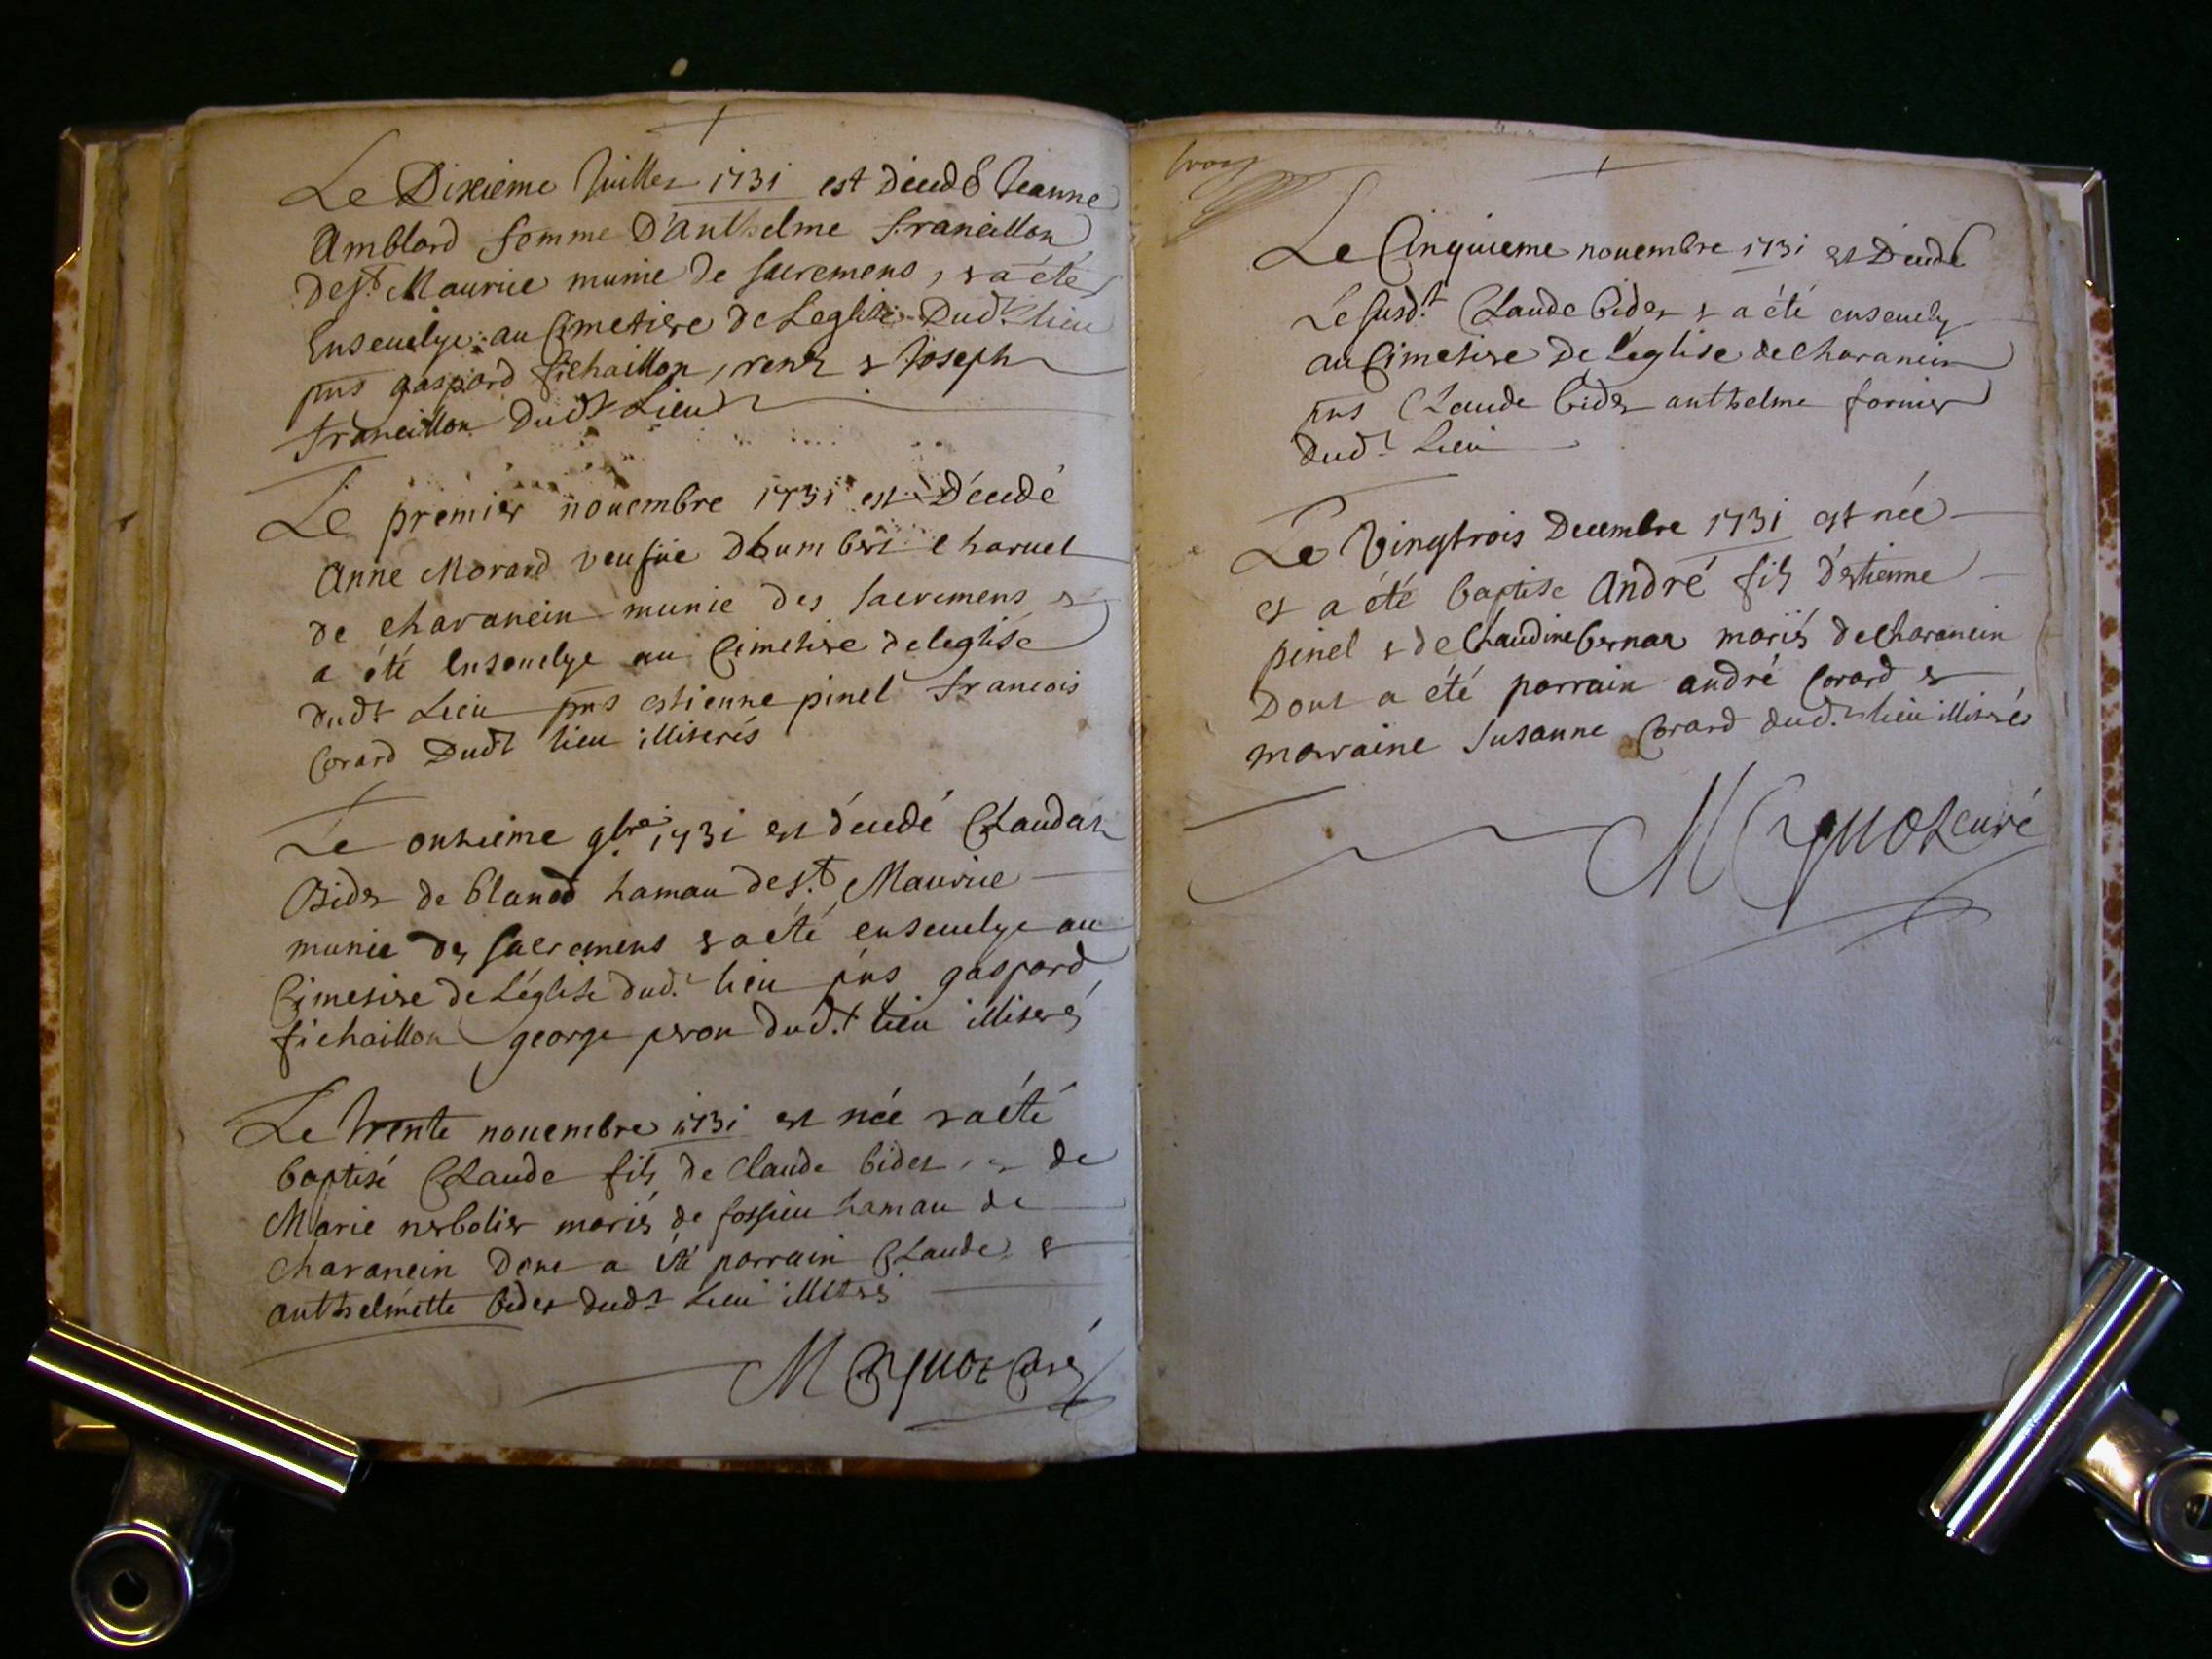 Le Dixieme Juillet 1731 est décédé Jeanne
Amblard femme D'anthelme francillon
de st Maurice munie de sacremens, & a été
Enseuelye au Cimetiere de Leglise Dudt lieu
pns gaspard fichaillon, & Joseph
francillon Dudt Lieu
Le premier nouembre 1731 est Décédé
Anne Morard veufue Dhumbert charuet
de charancin munie des sacremens &
a été Enseuelye au Cimetire de leglise
dudt Lieu pns estienne pinel francois
Corard Dudt lieu illiterés
Le onzieme 9bre 1731 est décédé Claudat
Bider de blanod hamau de st Maurice
munie des sacremens & a été enseuelye au
Cimetire de L'église dud. lieu pns gaspard
fichaillon george peron dud.t lieu illiteré
Le trente nouembre 1731 est née & a été
baptisé Claude fils de Claude bider & de
Marie nerbolier mariés de fossieu hamau de
charancin Dont a été parrain Claude &
anthelmette bider dudt Lieu illitrés
M Curé
Le Cinquieme nouembre 1731 est Décédé
Le susd.t Claude bider & a été enseuely
au Cimetire de l'église de charancin
pns Claude bider anthelme fornier
dud.t Lieu
Le Vingtrois Decembre 1731 est née
et a été baptise André fils D'estienne
pinel & de Claudine bernar mariés de charancin
Dont a été parrain andré Corard &
marraine Susanne Corard dud.t lieu illitrés
M curé